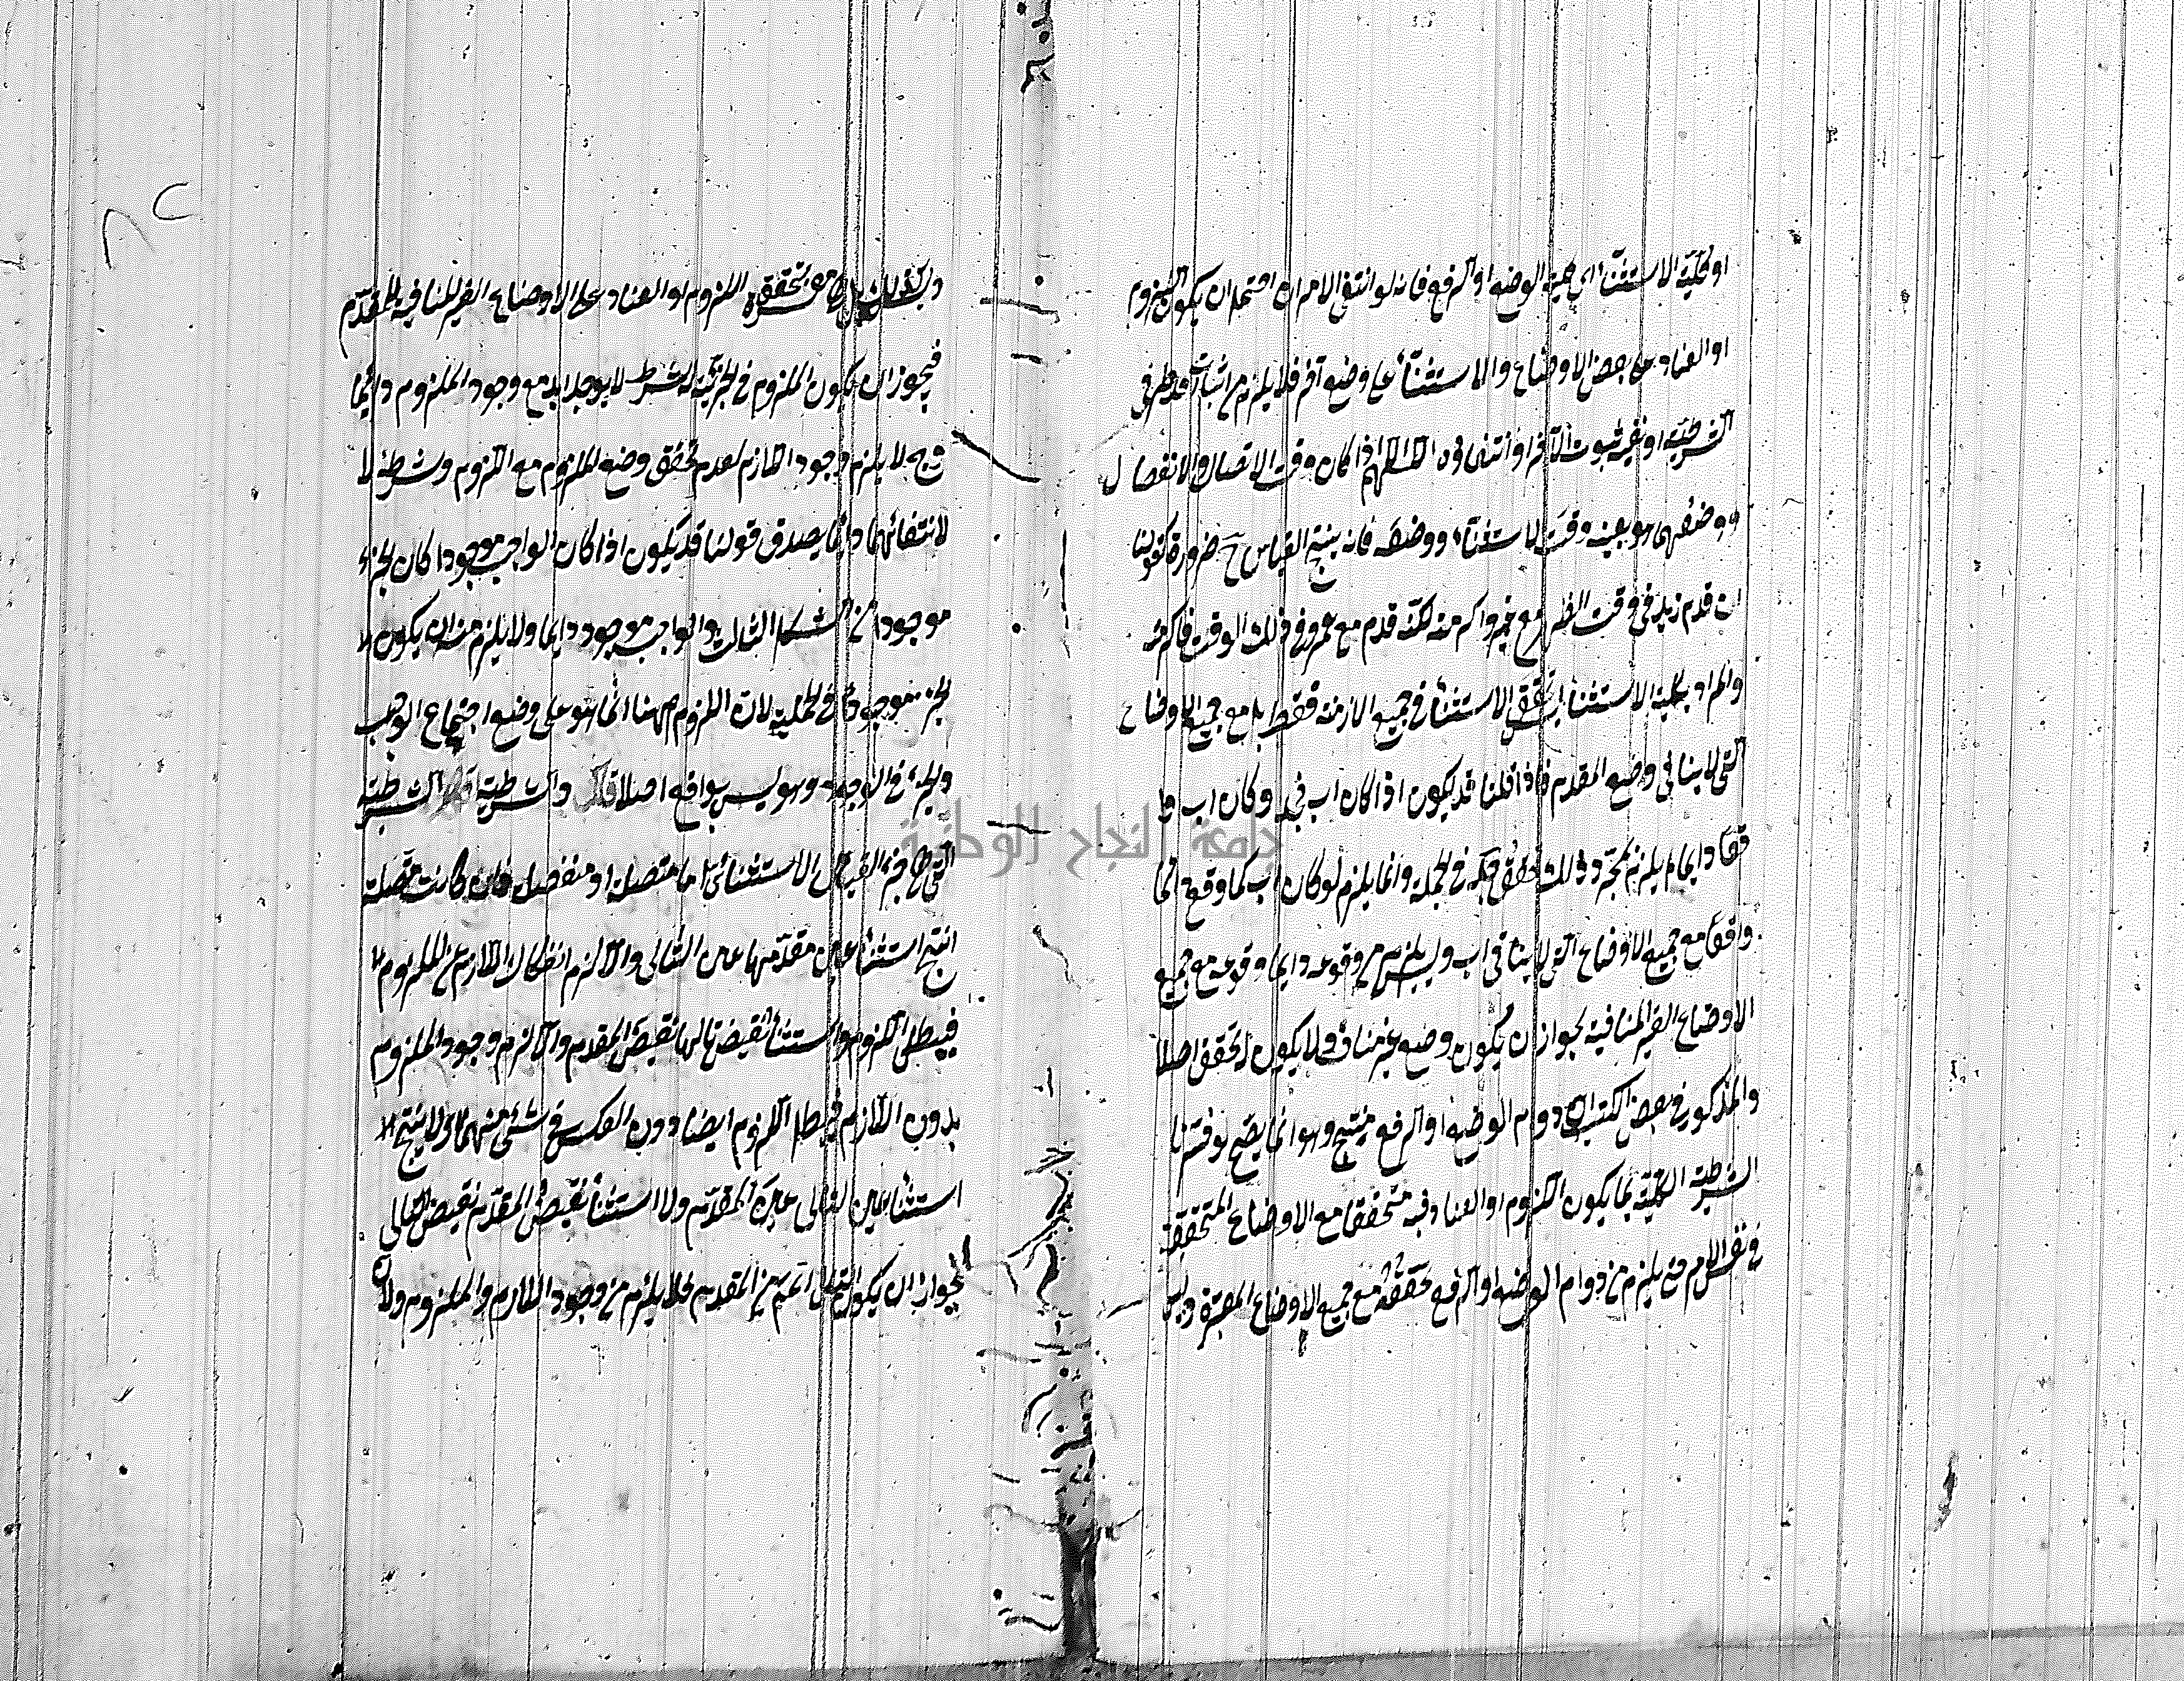 او كلية الاستثناء اى كلية الوضع او الرفع فانه لو انتفى الامران احتمل ان يكون اللزوم
او العناد على بعض الاوضاع والاستثناء على وضع آخر فلا يلزم من اثبات احد طرفى
الشرطية او نفيه ثبوت الآخر او انتفاؤه اللهم الا اذا كان وقت الاتصال والانفصال
ووضعهما هو بعينه وقت الاستثناء ووضعه فانه ينتج القياس ح ضرورة كقولنا
ان قدم زيد فى وقت الظهر مع عمرو اكرمته لكنه قدم مع عمرو فى ذلك الوقت فاكرمته
والمراد بكلية الاستثناء تحقق الاستثناء فى جميع الازمنة فقط بل مع جميع الاوضاع
التى لا ينافى وضع المقدم فاذا قلنا قد يكون اذا كان اب فجد وكان اب وا
قعا دايما لم يلزم بمجرد ذلك تحقق جد فى الجملة وانما يلزم لو كان اب كما وقع دائما
واقعا مع جميع الاوضاع التى لا ينافى اب وليس يلزم من وقوعه دايما وقوعه مع جميع
الاوضاع الغير المنافية لجواز ان يكون وضع غير مناف ولا يكون له تحقق اصلا
والمذكور فى بعض الكتب ان دوام الوضع او الرفع منتج وهو انما يصح لو فسرنا
الشرطية الكلية بما يكون اللزوم او العناد فيه متحققا مع الاوضاع المتحققة
فى نفس الامر فح يلزم من دوام الوضع او الرفع تحققه مع جميع الاوضاع المعتبرة وليس
تحقق اللزوم او العناد على الاوضاع الغير المنافية للمقدم
فيجوز ان يكون الملزوم فى الجزئية له شرط لا يوجد ابدا مع وجود الملزوم دائما
وح لا يلزم وجود اللازم لعدم تحقق وضع الملزوم مع اللزوم وشرطه لا
لانتفائهما دائما يصدق قولنا قد يكون اذا كان الواجب موجودا كان الجزء
موجودا من الشكل الثالث والواجب موجود دايما ولا يلزم منه ان يكون
الجزء موجودا فى الجملة لان اللزوم ههنا انما هو على وضع اجتماع الواجب
والجزء فى الوجود وهو ليس بواقع اصلا قال والشرطية اقول الشرطية
التى هى جزء القياس الاستثنائى اما متصلة او منفصلة فان كانت متصلة
انتج استثناء عين مقدمها عين التالى والا لزم انفكاك اللازم عن الملزوم
فيبطل اللزوم واستثناء نقيض تاليها نقيض المقدم والا لزم وجود الملزوم
بدون اللازم فيبطل اللزوم ايضا دون العكس فى شئ منهما اى لا ينتج
استثناء عين التالى عين المقدم ولا استثناء نقيض المقدم نقيض التالى
لجواز ان يكون التالى اعم من المقدم فلا يلزم من وجود اللازم والملزوم ولا